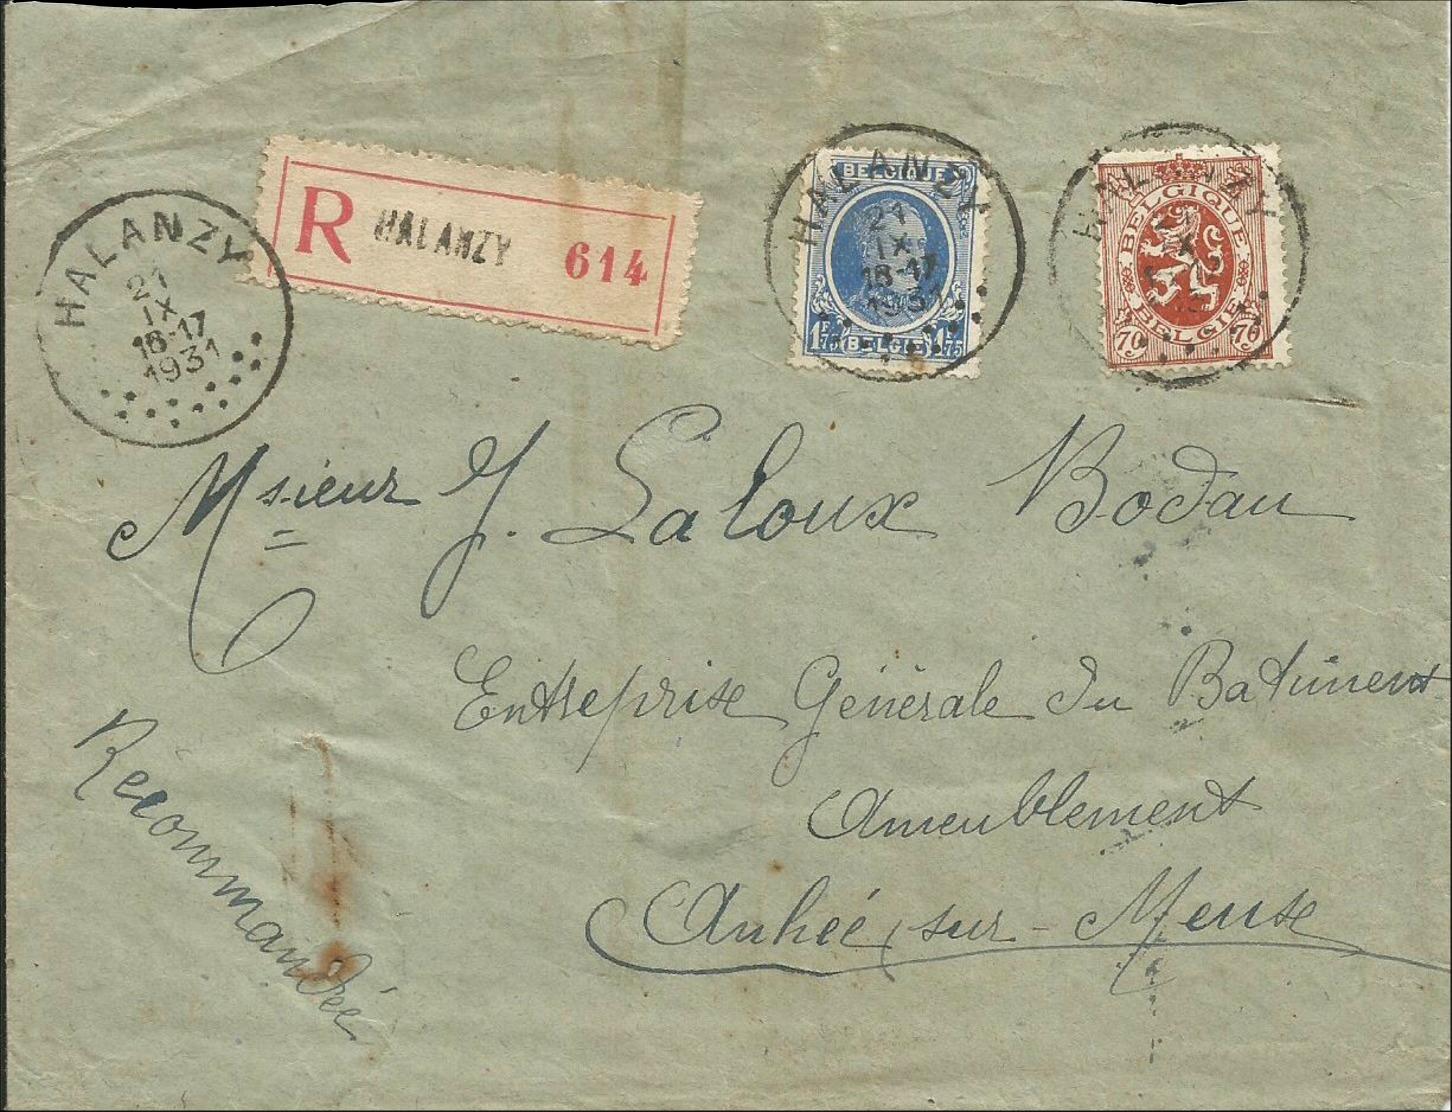 HALANZY
21
IX
16-17
1931
R HALANZY 614
HALANZY
21
IX
16-17
1931
BELGIQUE
1F75 BELGIË 1F75
HALANZY
BELGIQUE
70 BELGIË 70
Msieur J. Laloux Bodau
Entreprise Générale du Batiment
Ameublement
Anhée, sur-Meuse
Recommandée